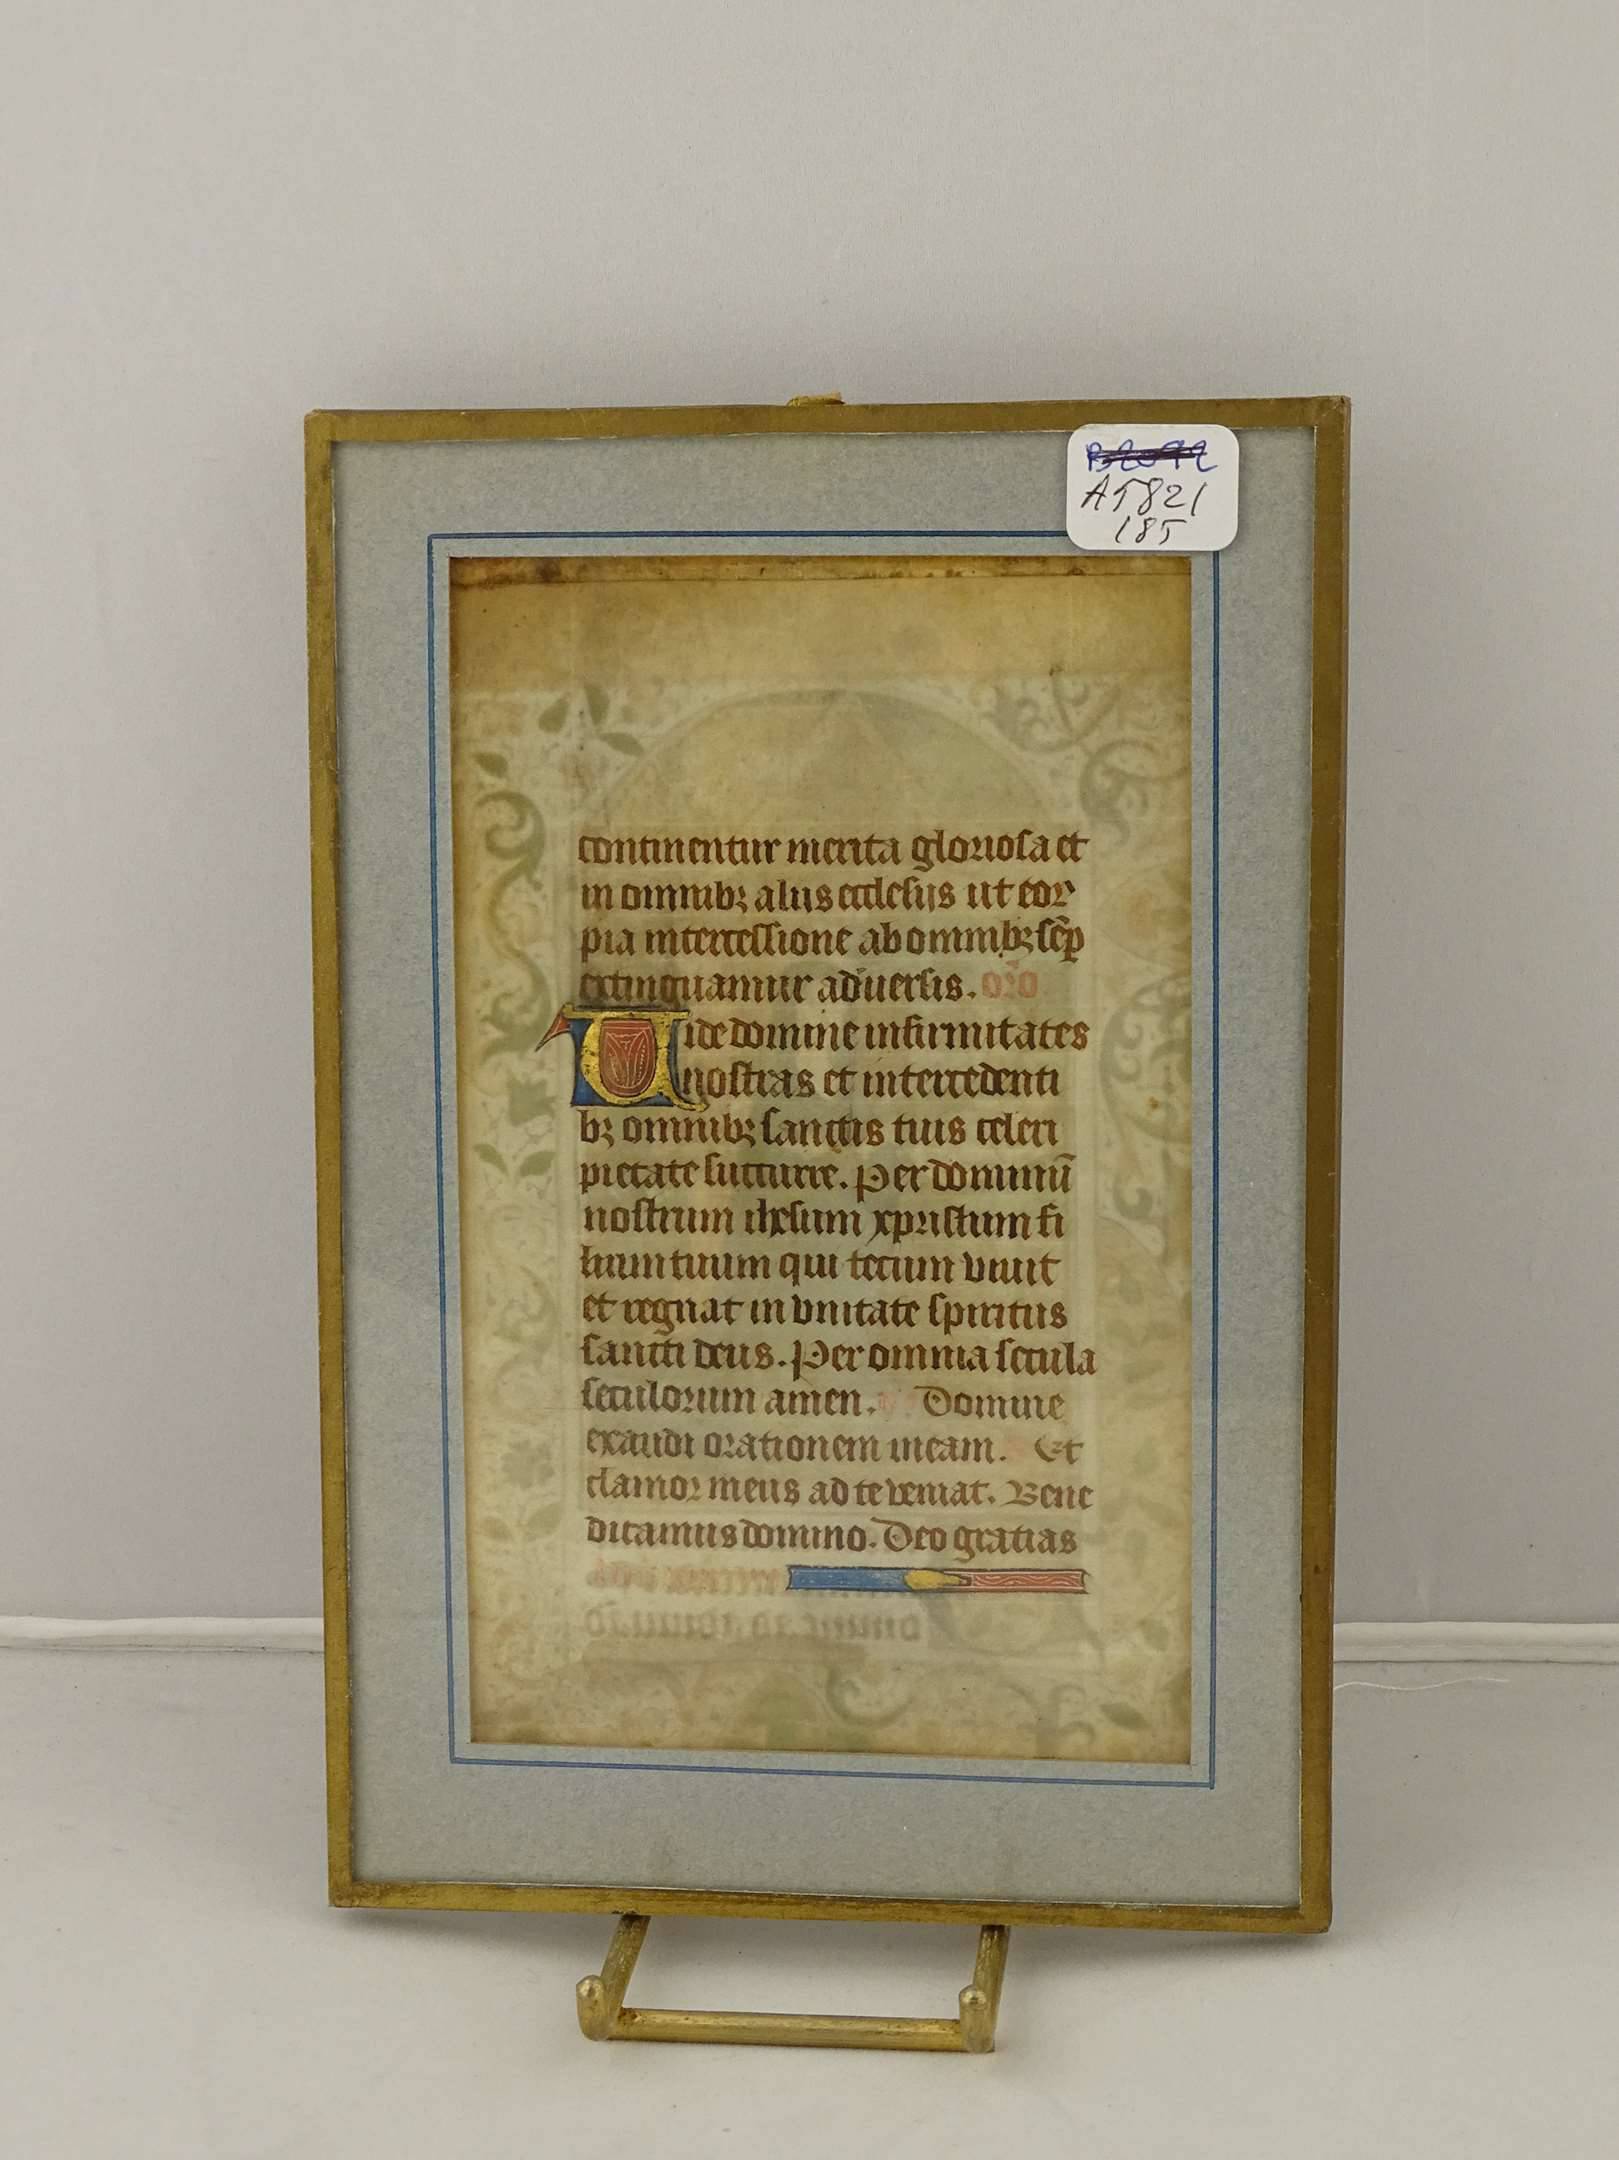 A5821
185
continentur merita gloriosa et
in omnibꝫ aliis ecclesiis ut eoꝝ
pia intercessione ab omnibꝫ sēꝑ
extinguamur aduersis. oro
Uide domine infirmitates
nostras et intercedenti
bꝫ omnibꝫ sanctis tuis celeri
pietate succurre. Per dominū
nostrum ihesum xpristum fi
lium tuum qui tecum viuit
et regnat in vnitate spiritus
sancti deus. Per omnia secula
seculorum amen. Domine
exaudi orationem meam. Et
clamor meus ad te veniat. Bene
dicamus domino. Deo gratias